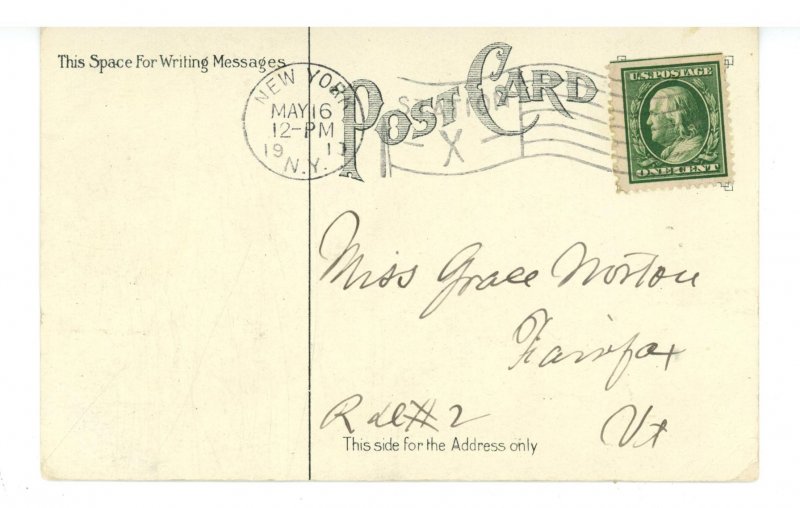 This Space For Writing Messages
NEW YORK
MAY 16
12-PM
19
N.Y.
POST CARD
STATION
X
U.S. POSTAGE
ONE CENT
Miss Grace Norton
Fairfax
Vt
#2
This side for the Address only